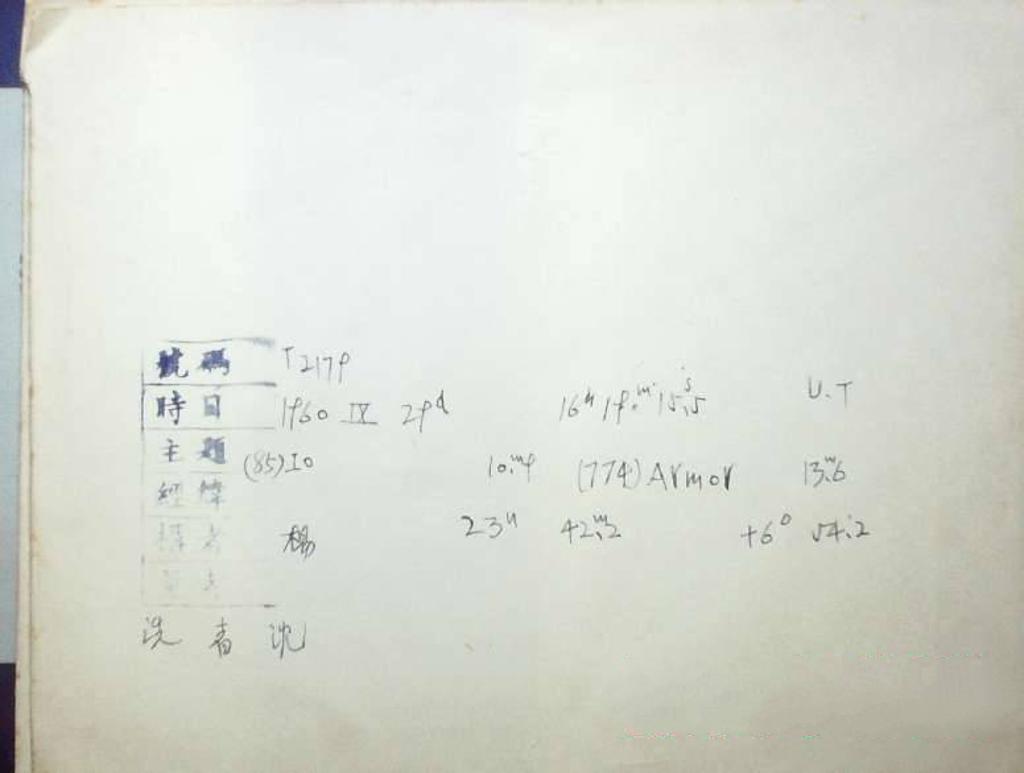 號碼 T 2179
時日 1960 IX 29ᵈ 16ʰ 19ᵐ 15ˢ.5 U.T
主題 (85) Io 10ᵐ.9 (774) Armor 13ᵐ.6
經緯
攝者 楊 23ʰ 42ᵐ.2 +6° 54'.2
洗者 沈